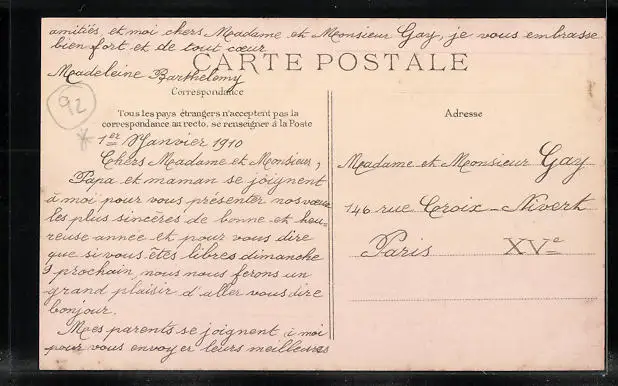 amitiés, et moi chers Madame et Monsieur Gay, je vous embrasse
bien fort et de tout cœur
Madeleine Barthelemy
CARTE POSTALE
Correspondance
Tous les pays étrangers n'acceptent pas la
correspondance au recto, se renseigner à la Poste
92
1er Janvier 1910
Chers Madame et Monsieur,
Papa et maman se joignent
à moi pour vous présenter nos vœux
les plus sincères de bonne et heu-
reuse année et pour vous dire
que si vous êtes libres dimanche
9 prochain, nous nous ferons un
grand plaisir d'aller vous dire
bonjour.
Mes parents se joignent à moi
pour vous envoyer leurs meilleures
Adresse
Madame et Monsieur Gay
146 rue Croix-Nivert
Paris XVe